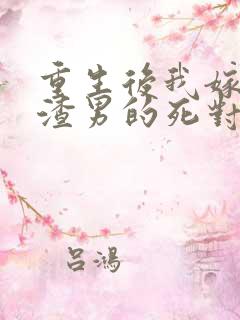 重生後我嫁
渣男的死對
吕鴻